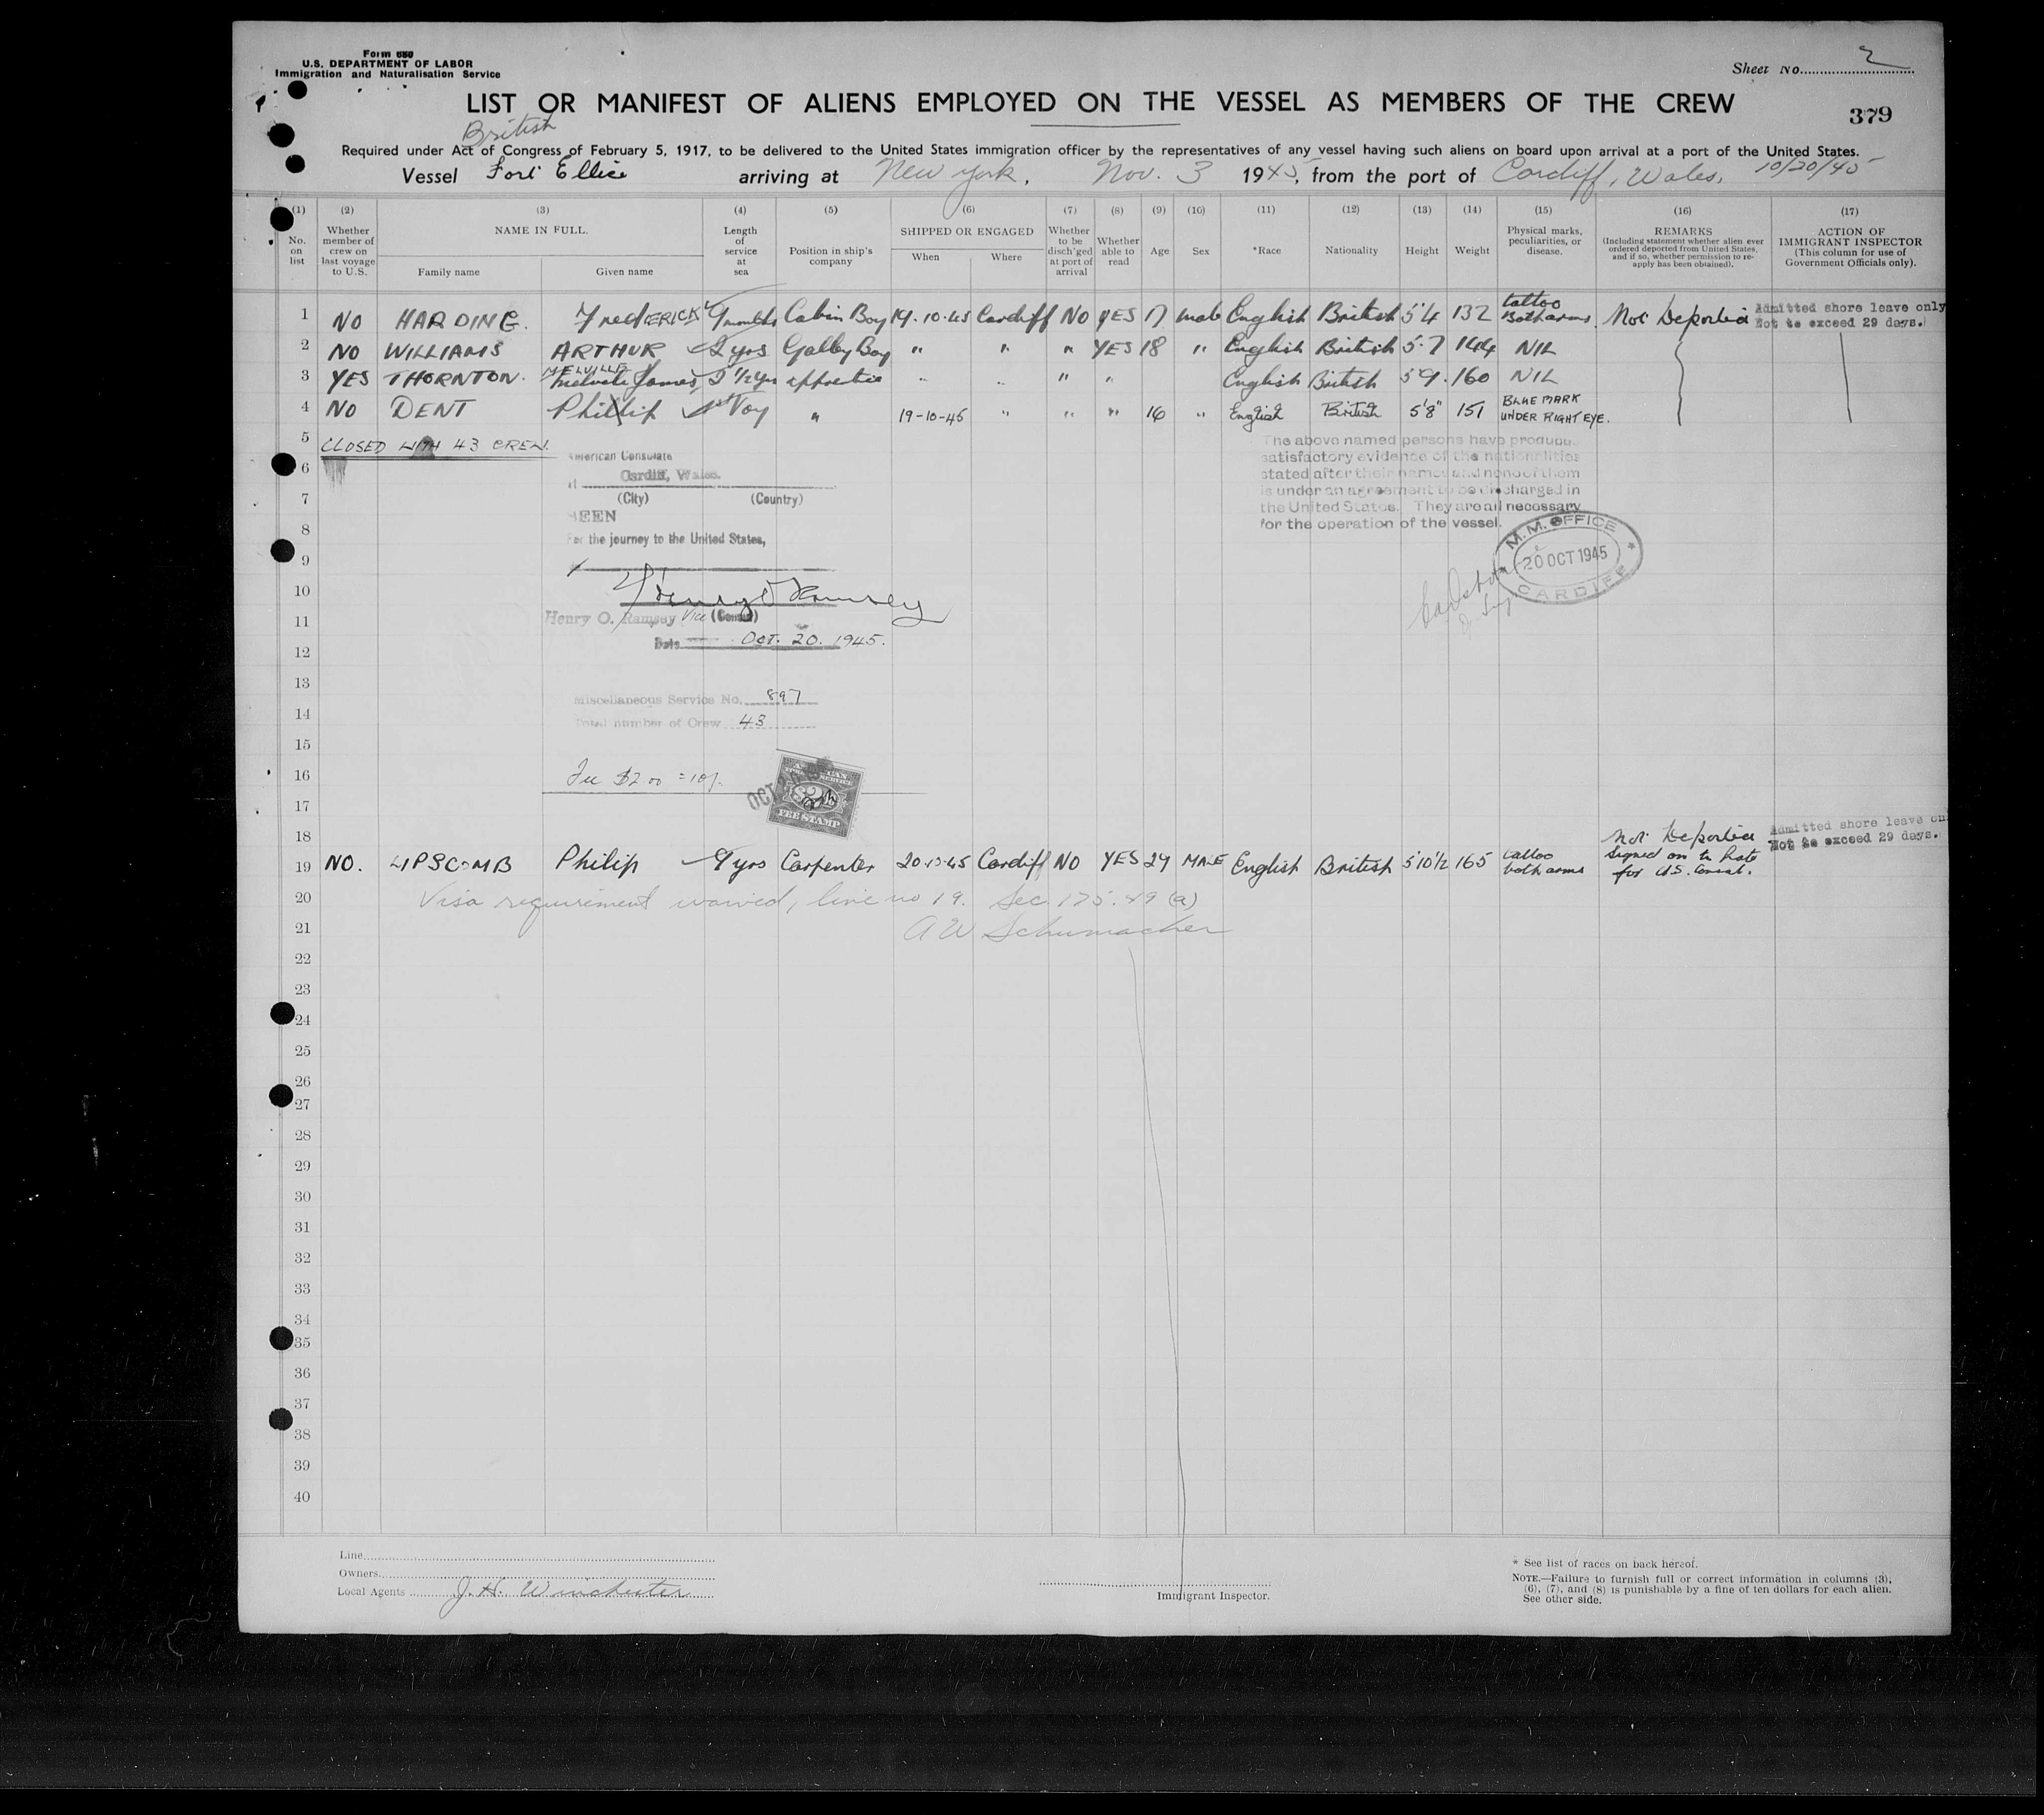 Form 680
U.S. DEPARTMENT OF LABOR
Immigration and Naturalisation Service
Sheet No. 2
LIST OR MANIFEST OF ALIENS EMPLOYED ON THE VESSEL AS MEMBERS OF THE CREW
379
British
Required under Act of Congress of February 5, 1917, to be delivered to the United States immigration officer by the representatives of any vessel having such aliens on board upon arrival at a port of the United States.
Vessel Fort Ellice arriving at New York, Nov. 3 1945, from the port of Cardiff, Wales, 10/20/45
(1) (2) (3) (4) (5) (6) (7) (8) (9) (10) (11) (12) (13) (14) (15) (16) (17)
No. on list
Whether member of crew on last voyage to U.S.
NAME IN FULL.
Family name
Given name
Length of service at sea
Position in ship's company
SHIPPED OR ENGAGED
When
Where
Whether to be disch'ged at port of arrival
Whether able to read
Age
Sex
*Race
Nationality
Height
Weight
Physical marks, peculiarities, or disease.
REMARKS
(Including statement whether alien ever ordered deported from United States, and if so, whether permission to re-apply has been obtained).
ACTION OF IMMIGRANT INSPECTOR
(This column for use of Government Officials only).
1 NO HARDING. FredERICK 9 months Cabin Boy 19.10.45 Cardiff NO YES 17 male English British 5'4 132 tattoo Both arms Not Deported Admitted shore leave only Not to exceed 29 days.
2 NO WILLIAMS ARTHUR 2 yrs Galley Boy " " " YES 18 " English British 5.7 144 NIL
3 YES THORNTON. MELVILLE Melville James 2 1/2 yrs apprentice " " " " English British 5'9. 160 NIL
4 NO DENT Phillip 1st Voy " 19-10-45 " " " 16 " English British 5'8" 151 BLUE MARK UNDER RIGHT EYE.
5 CLOSED WITH 43 CREW.
The above named persons have produced
satisfactory evidence of the nationalities
stated after their names and none of them
is under an agreement to be discharged in
the United States. They are all necessary
for the operation of the vessel.
American Consulate
6 Cardiff, Wales.
7 (City) (Country)
8 SEEN
For the journey to the United States,
M.M. OFFICE
20 OCT 1945
CARDIFF
9
10 Henry O Ramsey
11 Henry O. Ramsey Vice (Consul)
12 Date Oct. 20. 1945.
13
Miscellaneous Service No. 897
14 Total number of Crew 43
15
16 Fee $2.00 = 10/-
OCT 20
AMERICAN
SERVICE
$2
FEE STAMP
17
18
19 NO. LIPSCOMB Philip 9 yrs Carpenter 20.10.45 Cardiff NO YES 29 MALE English British 5'10 1/2 165 tattoo both arms Not Deported Signed on too late for U.S. Consul. Admitted shore leave on Not to exceed 29 days.
20 Visa requirement waived, line no 19. Sec. 175.49 (a)
21 A W Schumacher
22
23
24
25
26
27
28
29
30
31
32
33
34
35
36
37
38
39
40
Line
Owners
Local Agents J. H. Winchester
Immigrant Inspector.
* See list of races on back hereof.
NOTE.—Failure to furnish full or correct information in columns (3),
(6), (7), and (8) is punishable by a fine of ten dollars for each alien.
See other side.